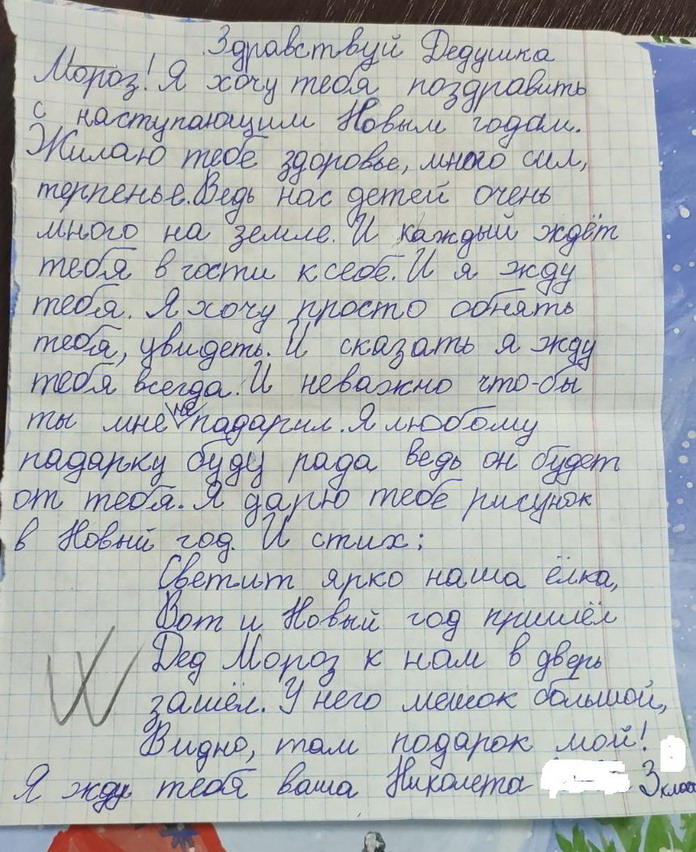 Здравствуй Дедушка
Мороз! Я хочу тебя поздравить
с наступающим Новым годом.
Жилаю тебе здоровье, много сил,
терпенье. Ведь нас детей очень
много на земле. И каждый ждёт
тебя в гости к себе. И я жду
тебя. Я хочу просто обнять
тебя, увидеть. И сказать я жду
тебя всегда. И неважно что-бы
ты мне не падарил. Я любому
падарку буду рада ведь он будет
от тебя. Я дарю тебе рисунок
в Новый год. И стих:
Светит ярко наша ёлка,
Вот и Новый год пришёл
Дед Мороз к нам в дверь
зашёл. У него мешок большой,
Видно, там подарок мой!
Я жду тебя ваша Николета 3 клас